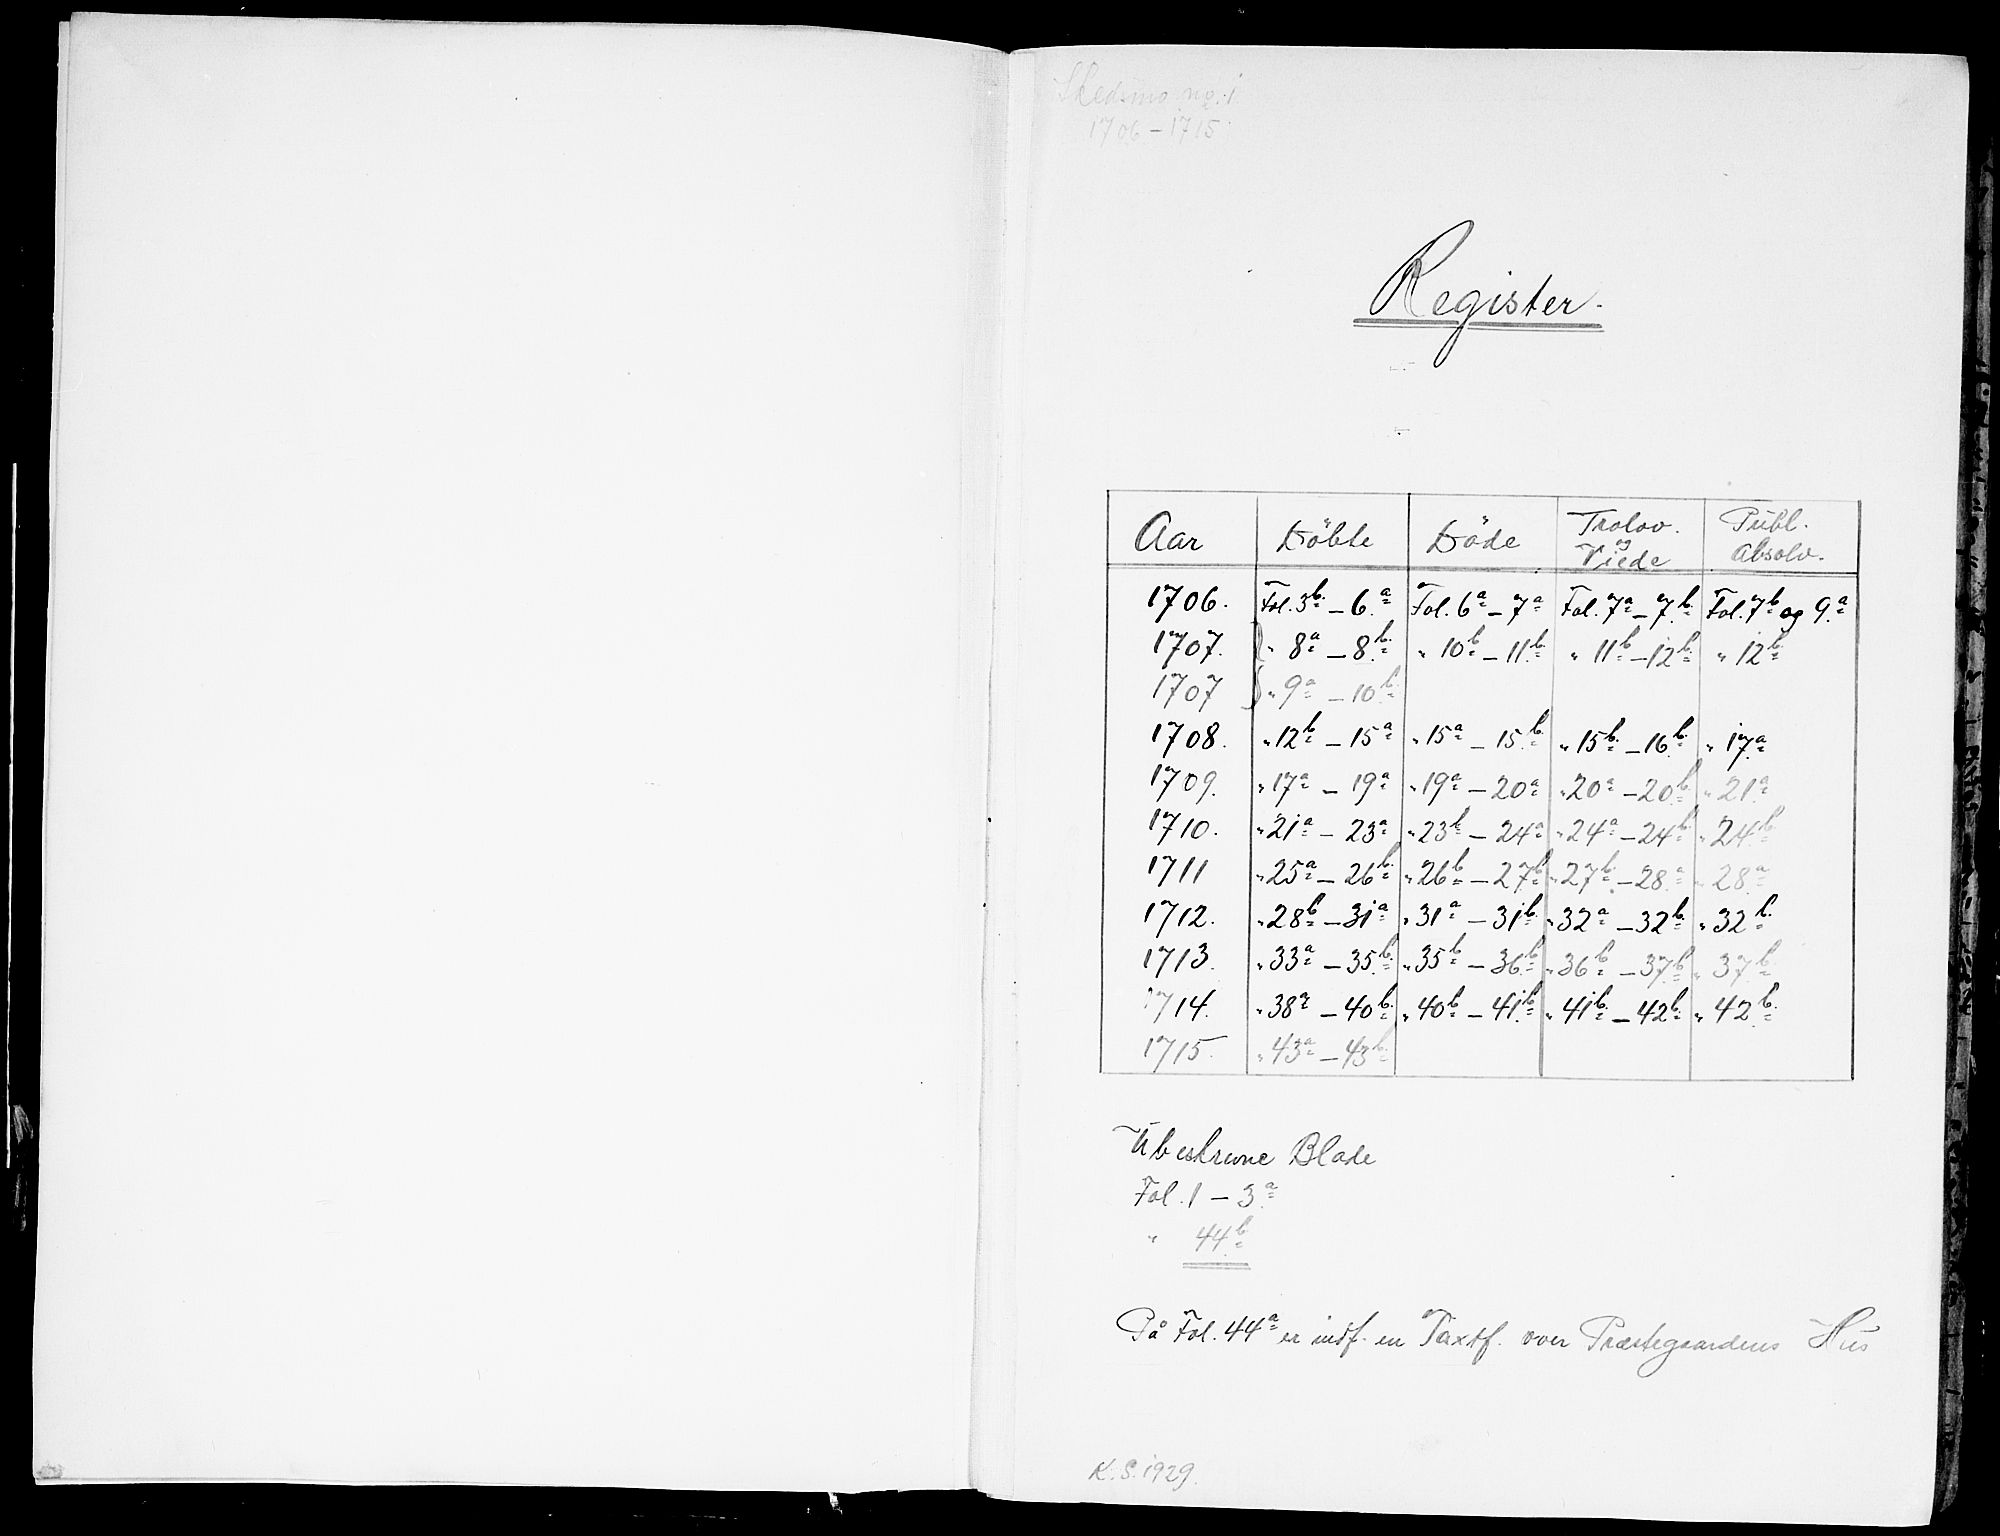 Skedsmo no. 1
1706-1715
Register.
Aar Döbte Döde Trolov. og Viede Publ. Absolv.
1706. Fol. 3b – 6a Fol. 6a – 7a Fol. 7a – 7b Fol. 7b og 9a
1707. " 8a – 8b " 10b – 11b " 11b – 12b " 12b
1707 " 9a – 10b
1708. " 12b – 15a " 15a – 15b " 15b – 16b " 17a
1709. " 17a – 19a " 19a – 20a " 20a – 20b " 21a
1710. " 21a – 23a " 23b – 24a " 24a – 24b " 24b
1711 " 25a – 26b " 26b – 27b " 27b – 28a " 28a
1712. " 28b – 31a " 31a – 31b " 32a – 32b " 32b
1713. " 33a – 35b " 35b – 36b " 36b – 37b " 37b
1714. " 38a – 40b " 40b – 41b " 41b – 42b " 42b
1715. " 43a – 43b
Ubeskrevne Blade
Fol. 1 – 3a
" 44b
På Fol. 44a er indf. en Taxtf. over Præstegaardens Hus
K. S. 1929.